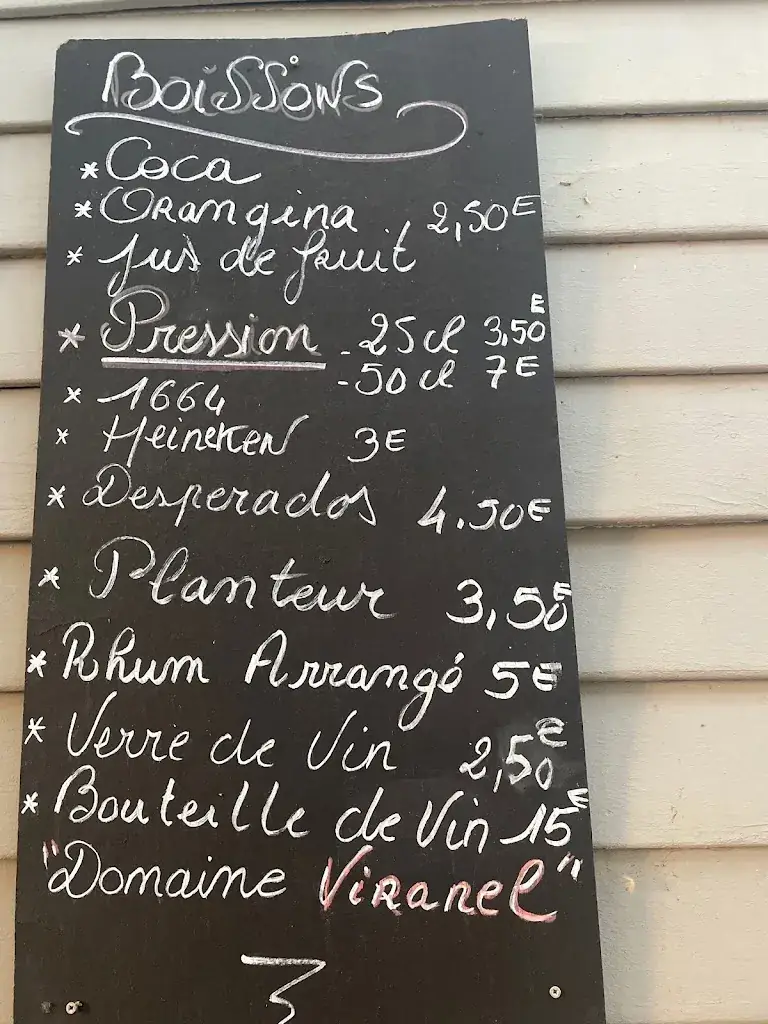 Boissons
* Coca
* Orangina , 2,50E
* Jus de fruit
* Pression - 25cl 3,50E
- 50cl 7E
* 1664
* Heineken 3E
* Desperados 4.50E
* Planteur 3,50E
* Rhum Arrangé 5E
* Verre de Vin 2,50E
* Bouteille de Vin 15E
"Domaine Viranel"